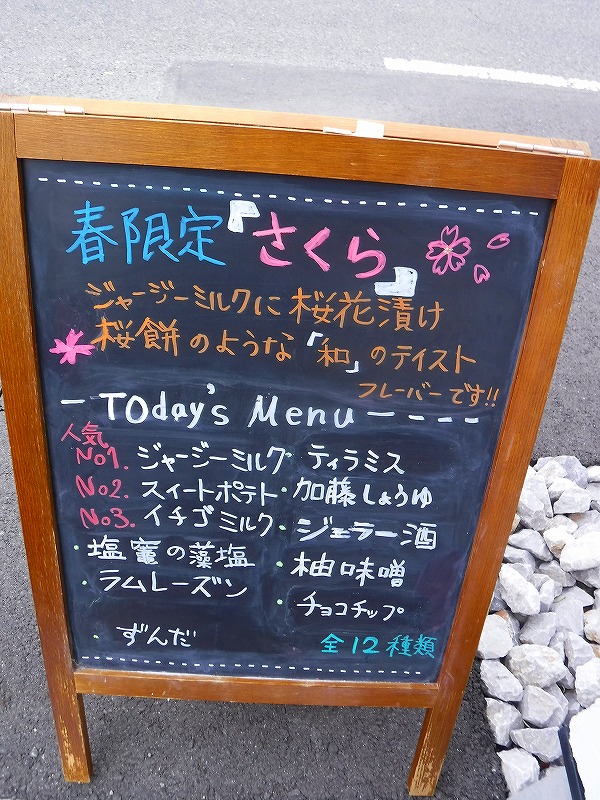 春限定『さくら』
ジャージーミルクに桜花漬け
桜餅のような「和」のテイスト
フレーバーです!!
ー TOday's Menu ー - - -
人気
No1. ジャージーミルク
No2. スイートポテト
No3. イチゴミルク
・塩竈の藻塩
・ラムレーズン
・ずんだ
・ティラミス
・加藤しょうゆ
・ジェラー酒
・柚味噌
・チョコチップ
全12種類